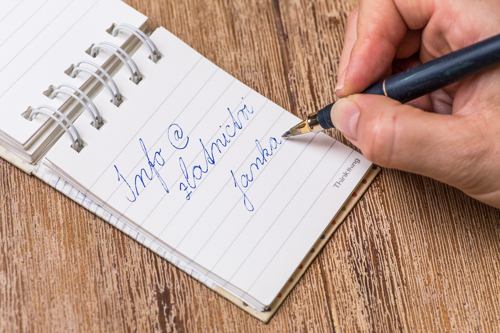 Info @
zlatnictvi
Janka
Thinkung